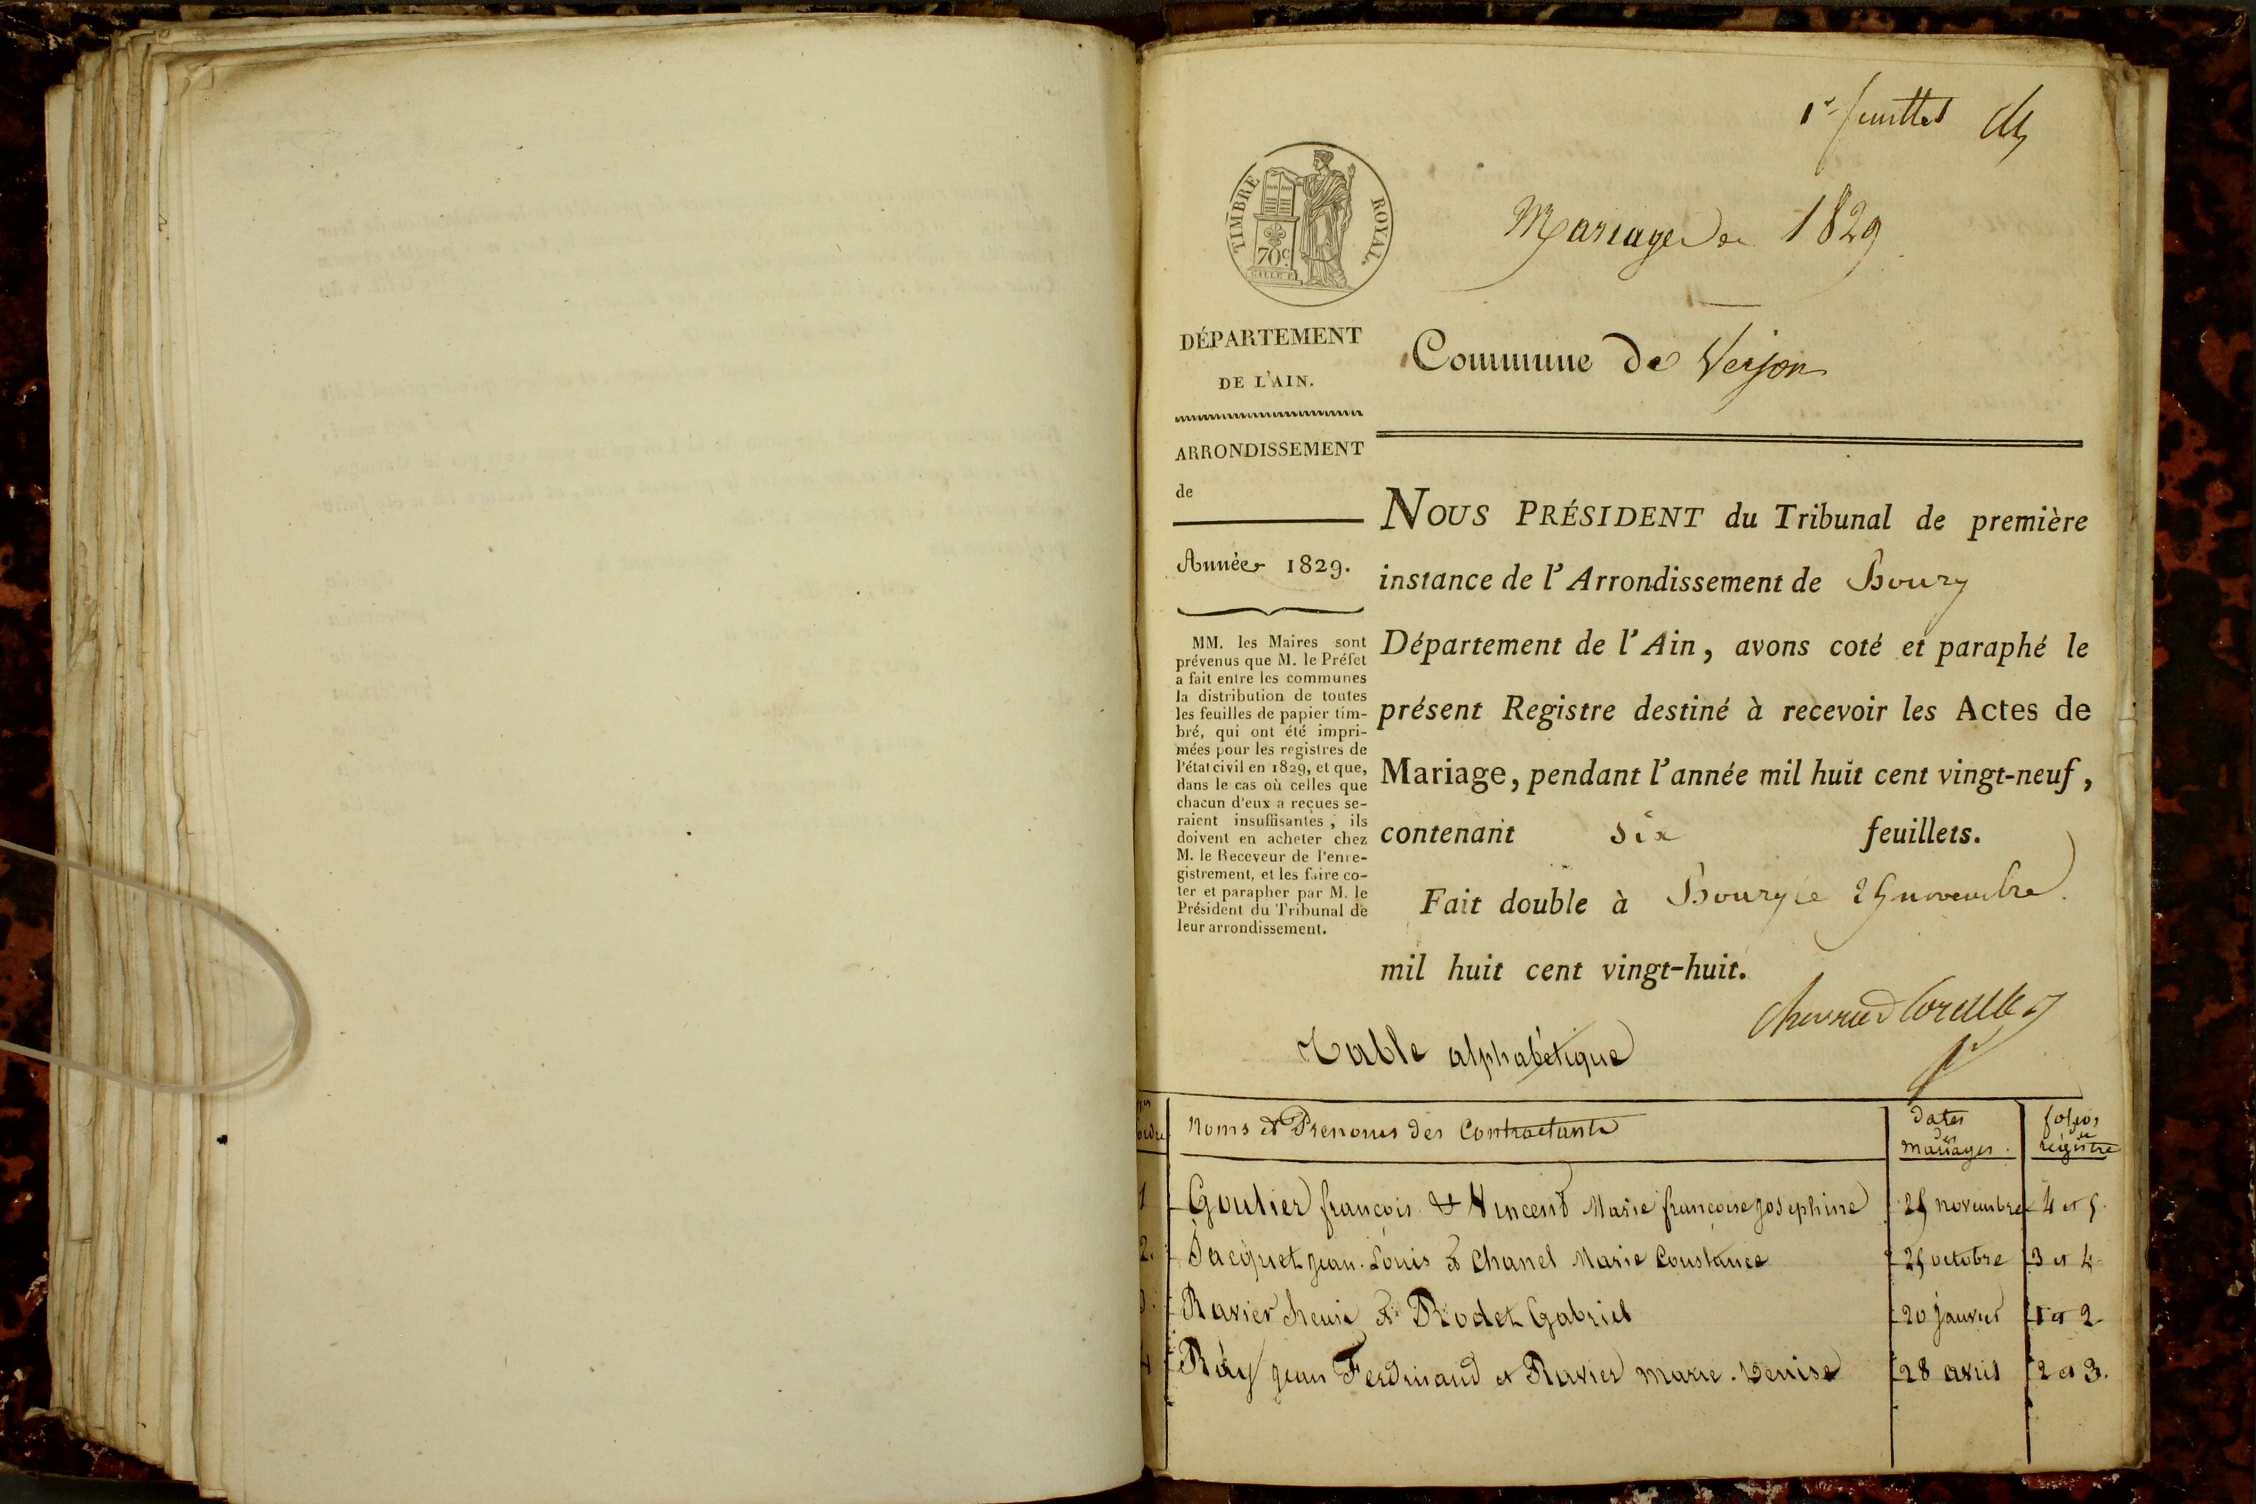 1er feuillet
TIMBRE ROYAL.
70c.
Mariages de 1829
DÉPARTEMENT
DE L'AIN.
Commune de Verjon
ARRONDISSEMENT
de
Année 1829.
MM. les Maires sont
prévenus que M. le Préfet
a fait entre les communes
la distribution de toutes
les feuilles de papier tim-
bré, qui ont été impri-
mées pour les registres de
l'état civil en 1829, et que,
dans le cas où celles que
chacun d'eux a reçues se-
raient insuffisantes, ils
doivent en acheter chez
M. le Receveur de l'enre-
gistrement, et les faire co-
ter et parapher par M. le
Président du Tribunal de
leur arrondissement.
NOUS PRÉSIDENT du Tribunal de première
instance de l'Arrondissement de Bourg
Département de l'Ain, avons coté et paraphé le
présent Registre destiné à recevoir les Actes de
Mariage, pendant l'année mil huit cent vingt-neuf,
contenant six feuillets.
Fait double à Bourg le novembre
mil huit cent vingt-huit.
Table alphabétique
Noms et Prenoms des Contractants dates des mariages. folios de registre
1 Goulier françois & Vincent Marie françoise josephine novembre 4 et 5.
2. Jacquet jean-Louis & Chanel Marie Constance octobre 3 et 4
3. Ravier henri & Rodet Gabriel 20 janvier 1 et 2
4 Ray jean Ferdinand et Ravier marie-Denise 28 avril 2 et 3.